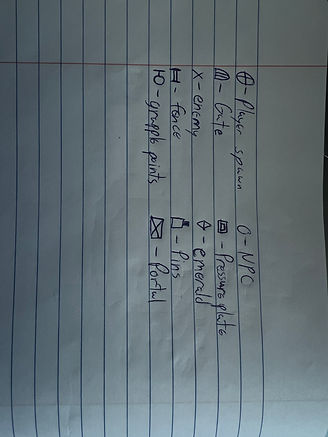 ⊕ - Player spawn   O - NPC
- Gate   - Pressure plate
x - enemy   - emerald
- fence   - Pins
- grapple points   - Portal